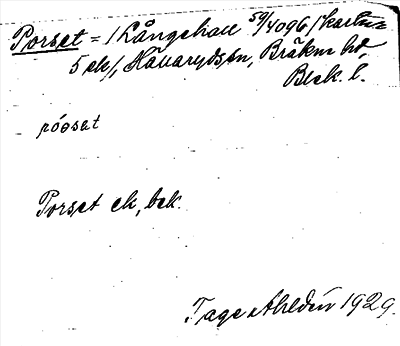 Porset = /Långehall 59/4096/ kartan
5 ek/, Hallarydssn, Bräkne hd,
Blek. l.
póosat
Porset ek, bek.
Tage Ahldén 1929.